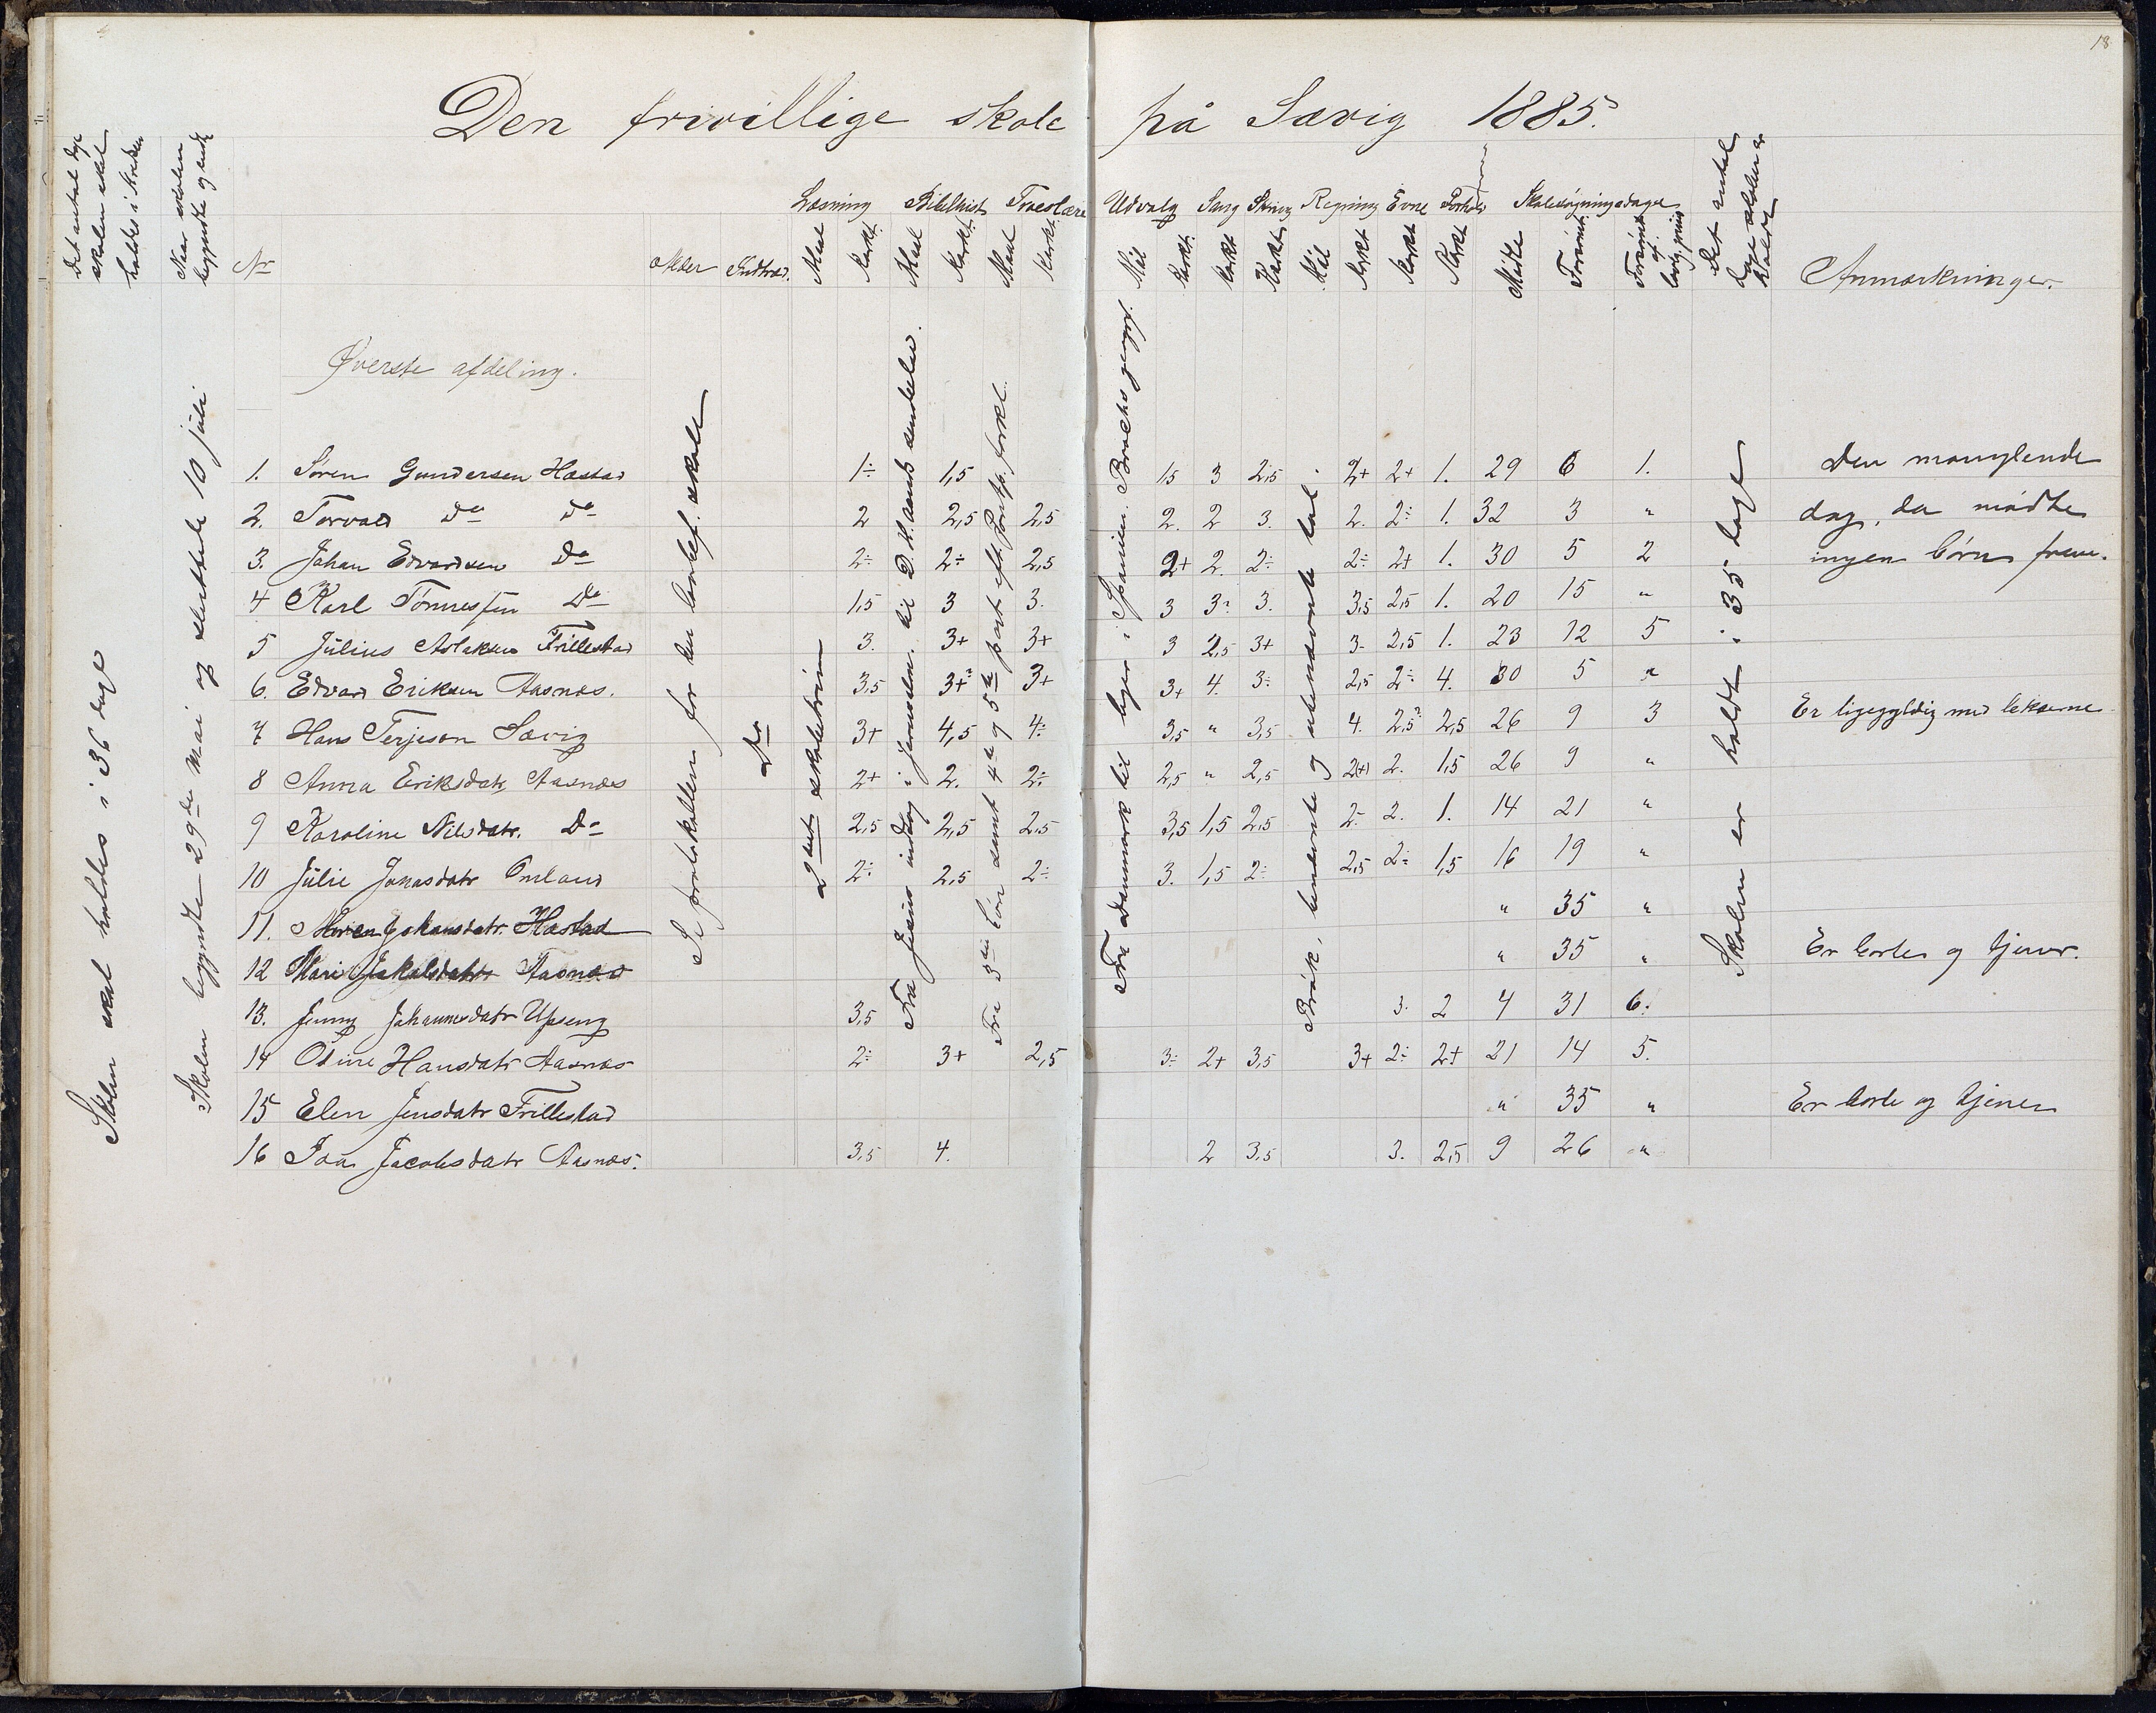 18
Den frivillige skole på Sævig 1885.
Det antal dage skolen skal holdes i kredsen
Naar skolen begyndte og endte
No
Alder Indtræd.
Læsning Bibelhist. Troeslære Udvalg Sang Skrivn. Regning Evne Forhold Skolesøgningsdage
Maal Karkt. Maal Karkt. Maal Karkt. Mål Karkt. Karkt Karkt. Mål Karkt Karkt Karkt Mødte Forsømt Forsømt af lovlig grund
Det antal dage skolen er holdt
Anmærkninger.
Øverste afdeling.
Skolen skal holdes i 36 dage
Skolen begyndte 29de mai og sluttede 10 juli
Se protokollen for den lovbef. skole
Do
2det skoletrin
Fra Jesus indtog i Jerusalem til D. H. aands sendelse.
Fra 3die bøn samt 4de og 5te part eft. Pontp. forkl.
Fra Danmark til byer i Spanien. Brochs geogr.
Brøk, benævnte og ubenævnte tal.
Skolen er holdt i 35 dage
1. Søren Gundersen Hæstad 1÷ 1,5 1,5 3 2,5 2+ 2+ 1. 29 6 1. Den manglende
2. Torvald Do Do 2 2,5 2,5 2. 2 3. 2. 2÷ 1. 32 3 " dag, da mødte
3. Johan Edvardsen Do 2÷ 2÷ 2,5 2+ 2. 2÷ 2÷ 2+ 1. 30 5 2 ingen børn frem.
4 Karl Tønnessen Do 1,5 3 3. 3 3? 3. 3,5 2,5 1. 20 15 "
5 Julius Aslaksen Frillestad 3. 3+ 3+ 3 2,5 3+ 3- 2,5 1. 23 12 5
6. Edvard Eriksen Aasnæs. 3,5 3+? 3+ 3+ 4. 3÷ 2,5 2÷ 4. 30 5 "
7 Hans Terjeson Sævig 3+ 4,5 4÷ 3,5 " 3,5 4. 2,5? 2,5 26 9 3 Er ligegyldig med lekserne
8 Anna Eriksdatr Aasnæs 2+ 2. 2÷ 2,5 " 2,5 2(+) 2. 1,5 26 9 "
9 Karoline Nilsdatr. Do 2,5 2,5 2,5 3,5 1,5 2,5 2- 2. 1. 14 21 "
10 Julie Jonasdatr Omland 2÷ 2,5 2÷ 3. 1,5 2÷ 2,5 2÷ 1,5 16 19 "
11. Maren Johansdatr. Hæstad " 35 "
12 Mari Jakobsdatr Aasnæs " 35 " Er borte og tjener.
13. Jenny Johannesdatr Upseng 3,5 3. 2 4 31 6.
14 Odine Hansdatr Aasnæs 2÷ 3+ 2,5 3÷ 2+ 3,5 3+ 2÷ 2+ 21 14 5.
15 Elen Jensdatr Frillestad " 35 " Er borte og tjener
16 Ida Jacobsdatr Aasnæs. 3,5 4. 2 3,5 3. 2,5 9 26 "